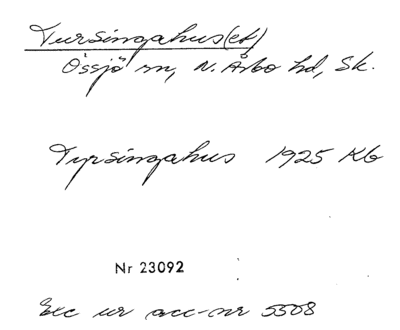 Tursingahus(et)
Össjö sn, N. Åsbo hd, Sk.
Tyrsingahus 1925 Kb
Nr 23092
Exc ur acc-nr 5508